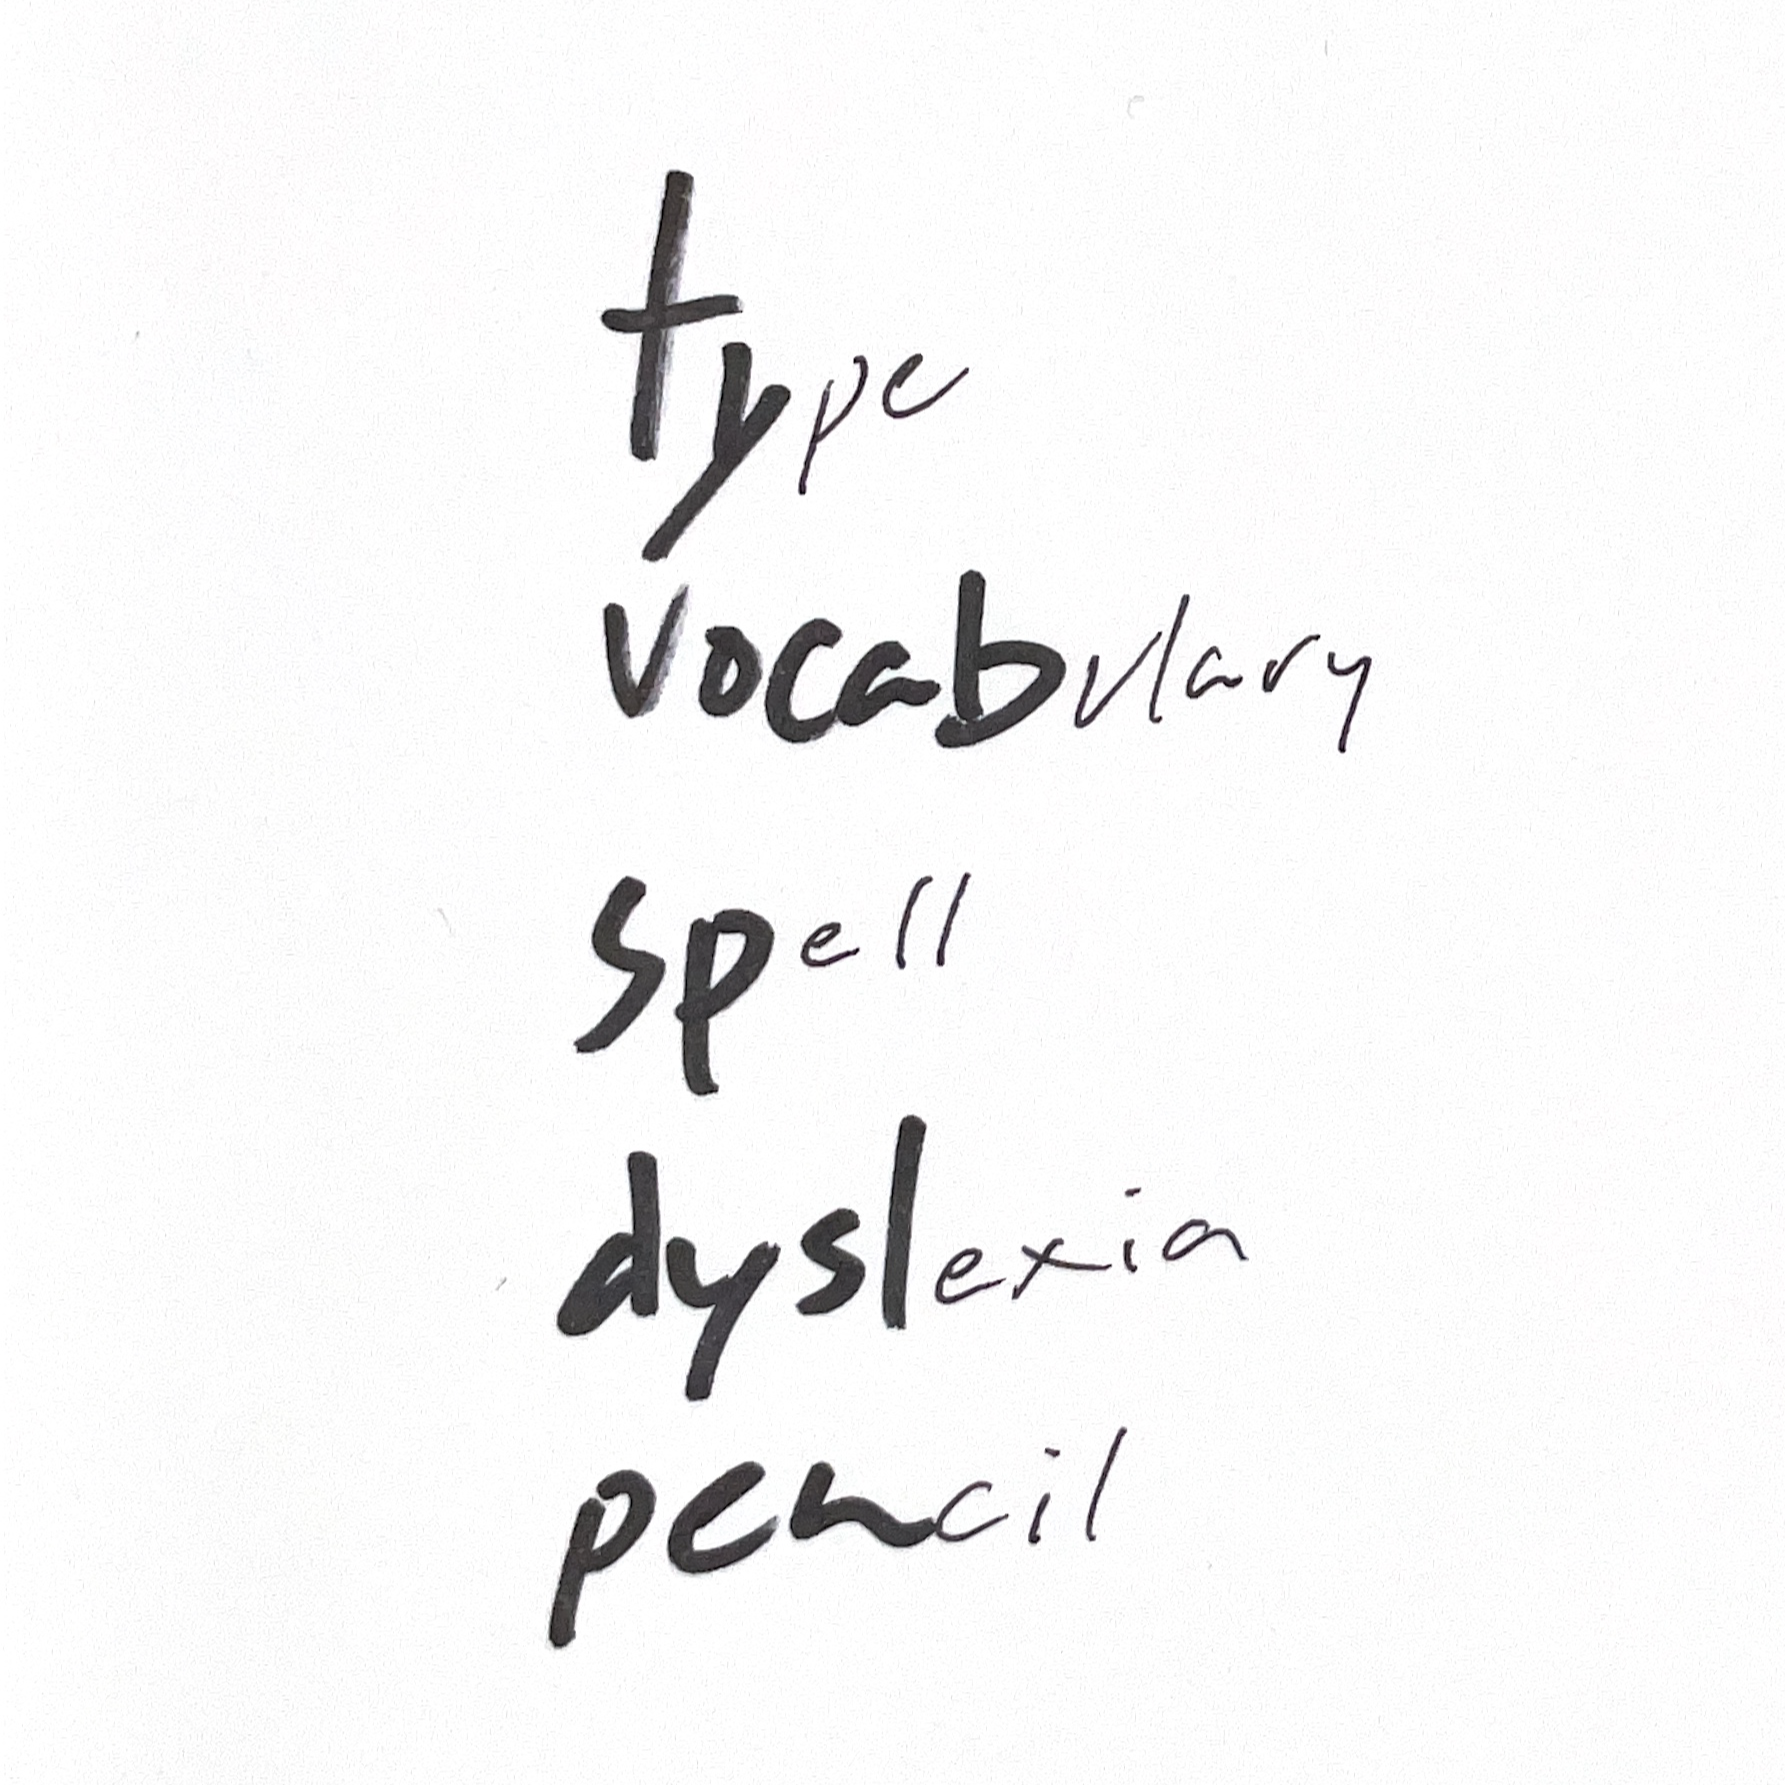 type
vocabulary
spell
dyslexia
pencil